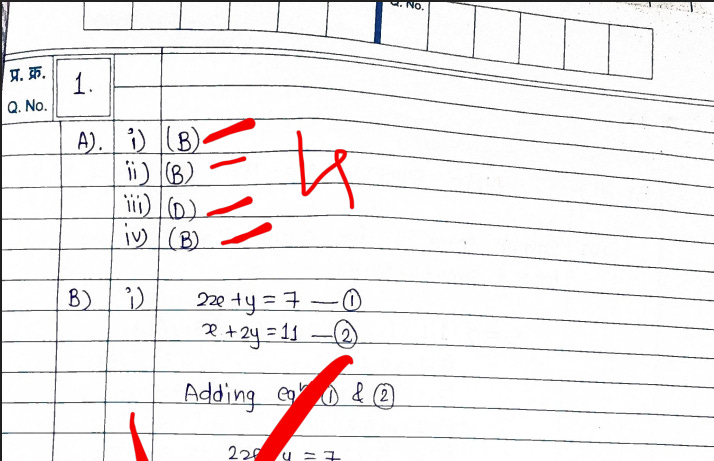 Q. No.
प्र. क्र. 1.
Q. No.
A). i) (B)
ii) (B)
iii) (D)
iv) (B)
B) i) 2x + y = 7 — ①
x + 2y = 11 — ②
Adding eqn ① & ②
2x y = 7